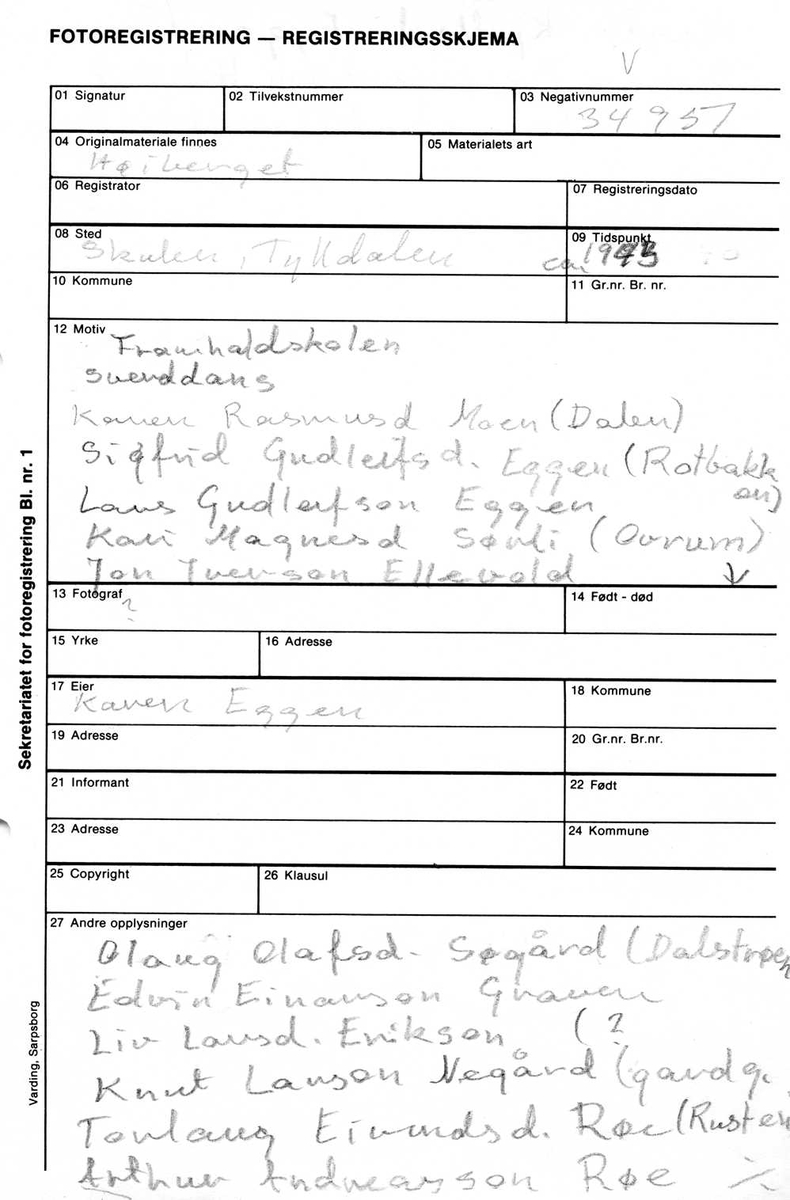 FOTOREGISTRERING — REGISTRERINGSSKJEMA
V
01 Signatur
02 Tilvekstnummer
03 Negativnummer
34957
04 Originalmateriale finnes
Høiberget
05 Materialets art
06 Registrator
07 Registreringsdato
08 Sted
Skulen, Tylldalen
09 Tidspunkt
ca. 1943
10 Kommune
11 Gr.nr. Br. nr.
12 Motiv
Framhaldskolen
Sverddans
Karen Rasmusd Moen (Dalen)
Sigfrid Gudleifsd. Eggen (Rotbakken)
Lars Gudleifson Eggen
Kari Magnesd Sørli (Ovrum)
Jon Iverson Ellevold
13 Fotograf
?
14 Født - død
15 Yrke
16 Adresse
17 Eier
Karen Eggen
18 Kommune
19 Adresse
20 Gr.nr. Br.nr.
21 Informant
22 Født
23 Adresse
24 Kommune
25 Copyright
26 Klausul
27 Andre opplysninger
Olaug Olafsd. Søgård (Dalstrøen
Edvin Einarson Graven
Liv Larsd. Erikson (?
Knut Larson Negård (gardg.
Torlaug Eivindsd. Røe (Rusten
Arthur Andreasson Røe
Sekretariatet for fotoregistrering Bl. nr. 1
Varding, Sarpsborg